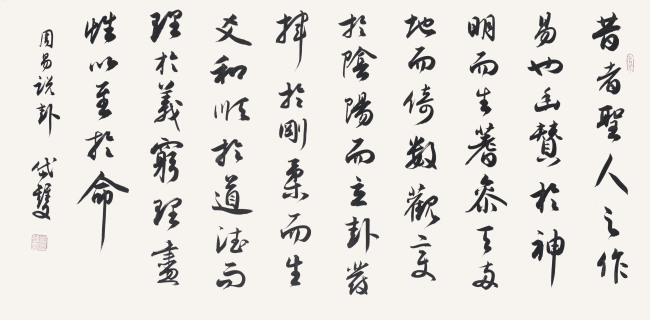 昔者聖人之作
易也幽贊於神
明而生蓍參天兩
地而倚數觀變
於陰陽而立卦發
揮於剛柔而生
爻和順於道德而
理於義窮理盡
性以至於命
周易說卦